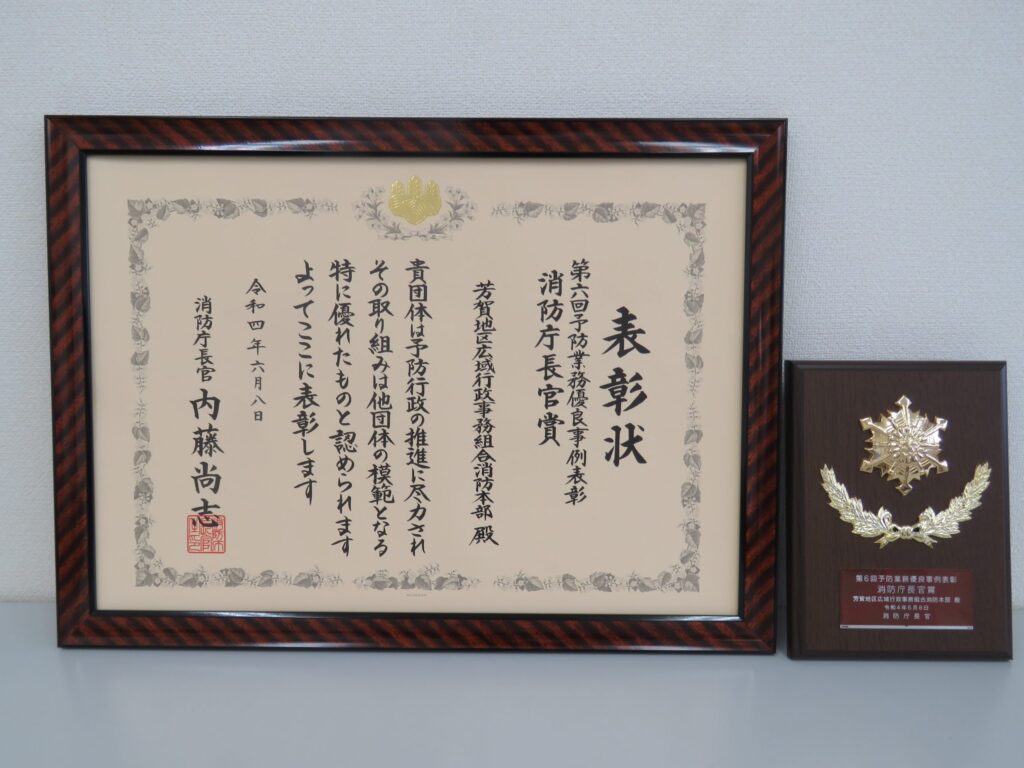 表彰状
第六回予防業務優良事例表彰
消防庁長官賞
芳賀地区広域行政事務組合消防本部 殿
貴団体は予防行政の推進に尽力され
その取り組みは他団体の模範となる
特に優れたものと認められます
よってここに表彰します
令和四年六月八日
消防庁長官 内藤尚志
第6回予防業務優良事例表彰
消防庁長官賞
芳賀地区広域行政事務組合消防本部 殿
令和4年6月8日
消防庁長官